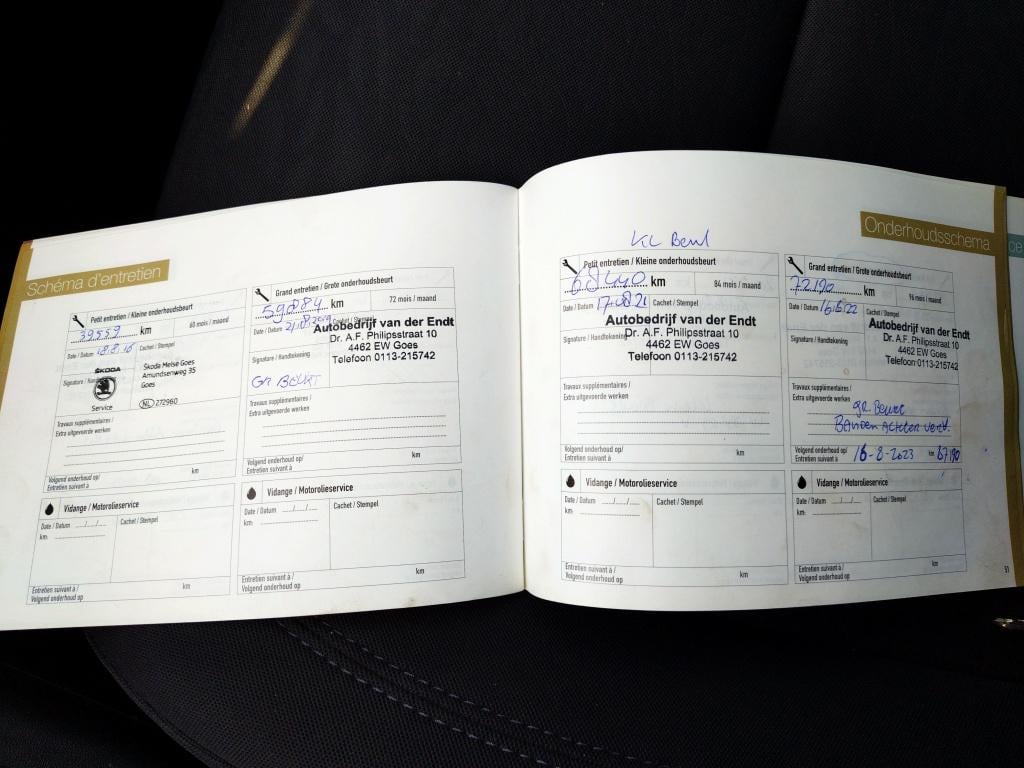 Schéma d'entretien
Petit entretien / Kleine onderhoudsbeurt
39559 km
60 mois / maand
Date / Datum 18.8.16
Cachet / Stempel
ŠKODA
Service
Skoda Melse Goes
Amundsenweg 35
Goes
NL 272960
Signature / Handtekening
Travaux supplémentaires /
Extra uitgevoerde werken
Volgend onderhoud op/
Entretien suivant à
km
Vidange / Motorolieservice
Date / Datum .../.../...
km:
Cachet / Stempel
Entretien suivant à /
Volgend onderhoud op
km
Grand entretien / Grote onderhoudsbeurt
59884 km
72 mois / maand
Date / Datum 21.08.2019
Cachet / Stempel
Autobedrijf van der Endt
Dr. A.F. Philipsstraat 10
4462 EW Goes
Telefoon 0113-215742
Signature / Handtekening
Gr BEURT
Travaux supplémentaires /
Extra uitgevoerde werken
Volgend onderhoud op/
Entretien suivant à
km
Vidange / Motorolieservice
Date / Datum .../.../...
km:
Cachet / Stempel
Entretien suivant à /
Volgend onderhoud op
km
Onderhoudsschema
ce
KL Beurt
Petit entretien / Kleine onderhoudsbeurt
68440 km
84 mois / maand
Date / Datum 17.08.21
Cachet / Stempel
Autobedrijf van der Endt
Dr. A.F. Philipsstraat 10
4462 EW Goes
Telefoon 0113-215742
Signature / Handtekening
Travaux supplémentaires /
Extra uitgevoerde werken
Volgend onderhoud op/
Entretien suivant à
km
Vidange / Motorolieservice
Date / Datum .../.../...
km:
Cachet / Stempel
Entretien suivant à /
Volgend onderhoud op
km
Grand entretien / Grote onderhoudsbeurt
72190 km
96 mois / maand
Date / Datum
Cachet / Stempel
Autobedrijf van der Endt
Dr. A.F. Philipsstraat 10
4462 EW Goes
Telefoon 0113-215742
Signature / Handtekening
Travaux supplémentaires /
Extra uitgevoerde werken
gr Beurt
Banden Achter verv.
Volgend onderhoud op/
Entretien suivant à
16-8-2023 km 87190
Vidange / Motorolieservice
Date / Datum .../.../...
km:
Cachet / Stempel
Entretien suivant à /
Volgend onderhoud op
km
51